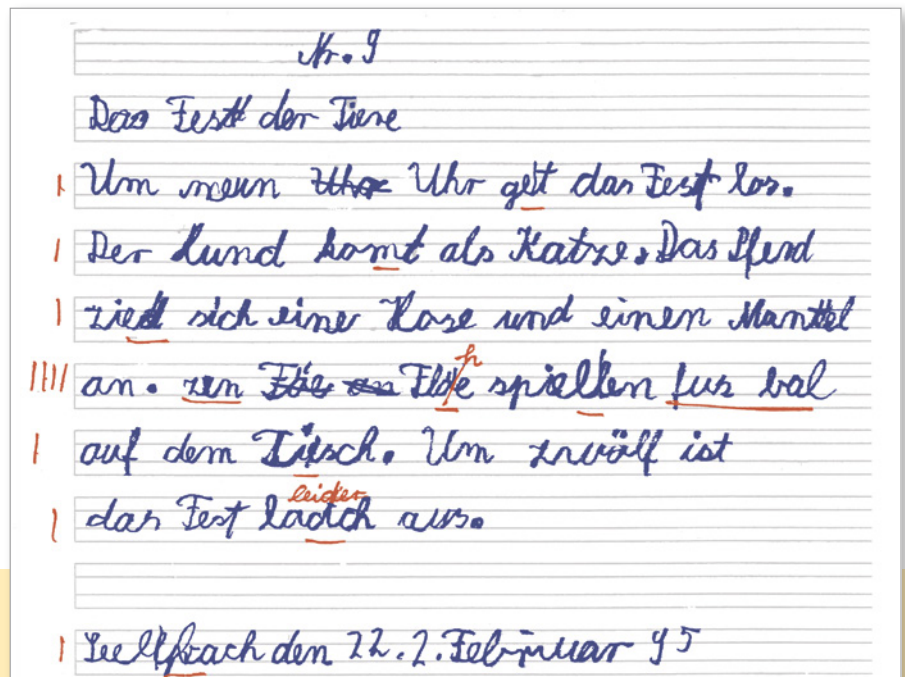 Nr. 9
Das Fest der Tiere
Um neun Uhr get das Fest los.
Der Hund komt als Katze. Das Pferd
zied sich eine Hose und einen Mantel
an. zen spiellen fus bal
auf dem Tisch. Um zwölf ist
leider
das Fest aus.
den 22.2. Februar 95